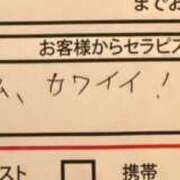 までお
お客様からセラピス
ム、カワイイ!
スト
携帯